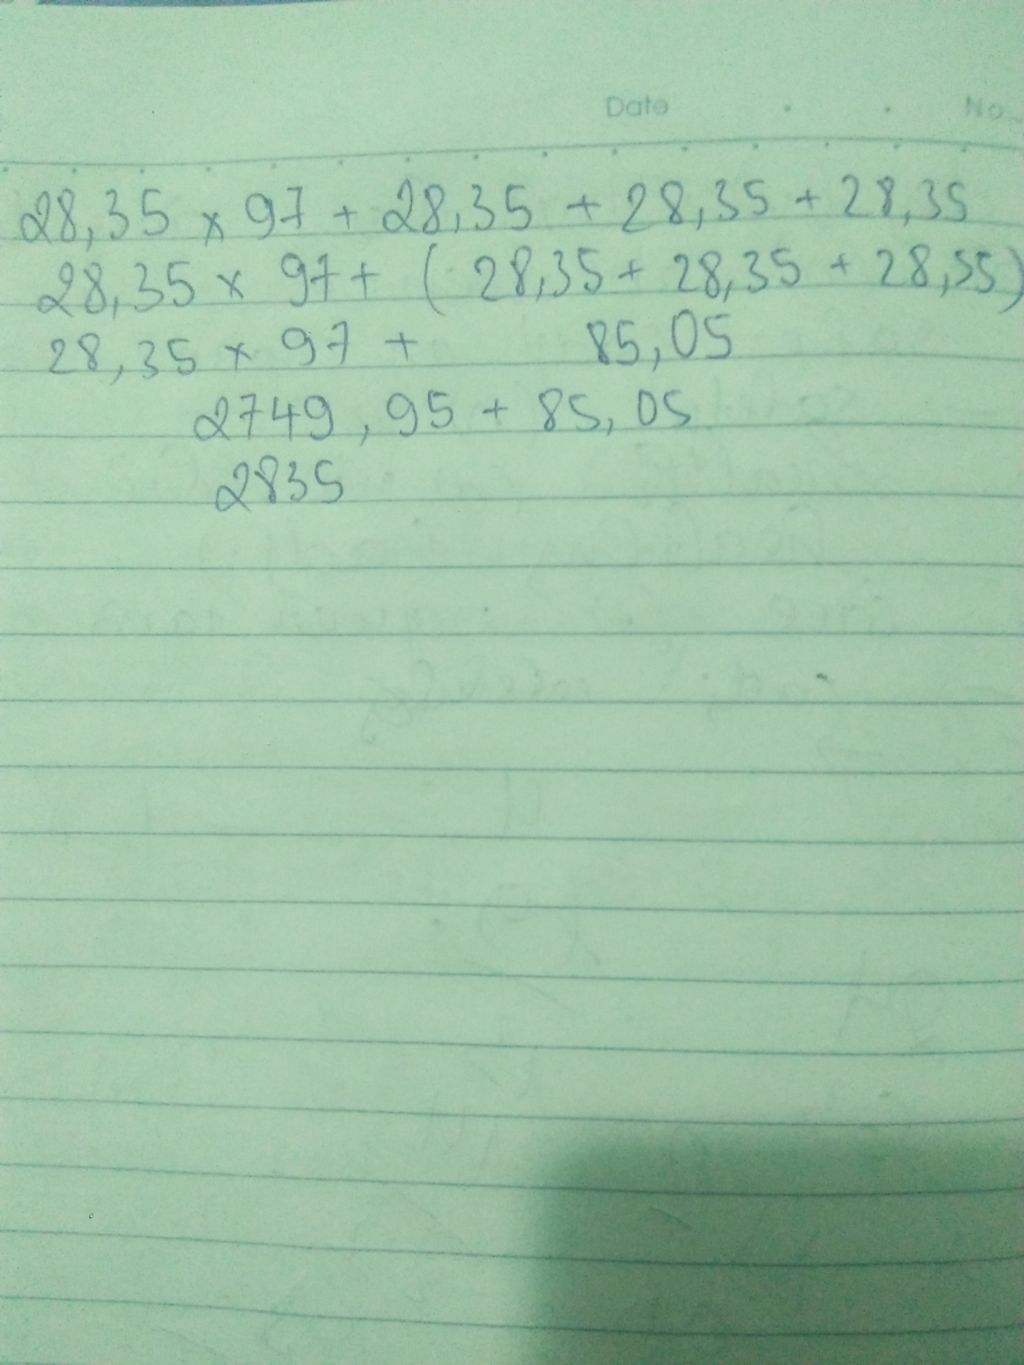 Date No.
28,35 x 97 + 28,35 + 28,35 + 28,35
28,35 x 97 + ( 28,35 + 28,35 + 28,35)
28,35 x 97 + 85,05
2749,95 + 85,05
2835